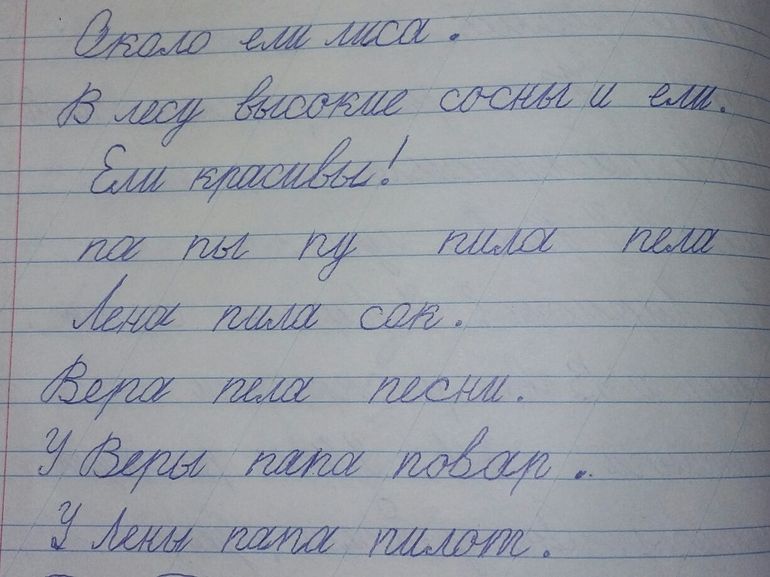 Около ели лиса.
В лесу высокие сосны и ели.
Ели красивы!
па пы пу пила пела
Лена пила сок.
Вера пела песни.
У Веры папа повар.
У Лены папа пилот.